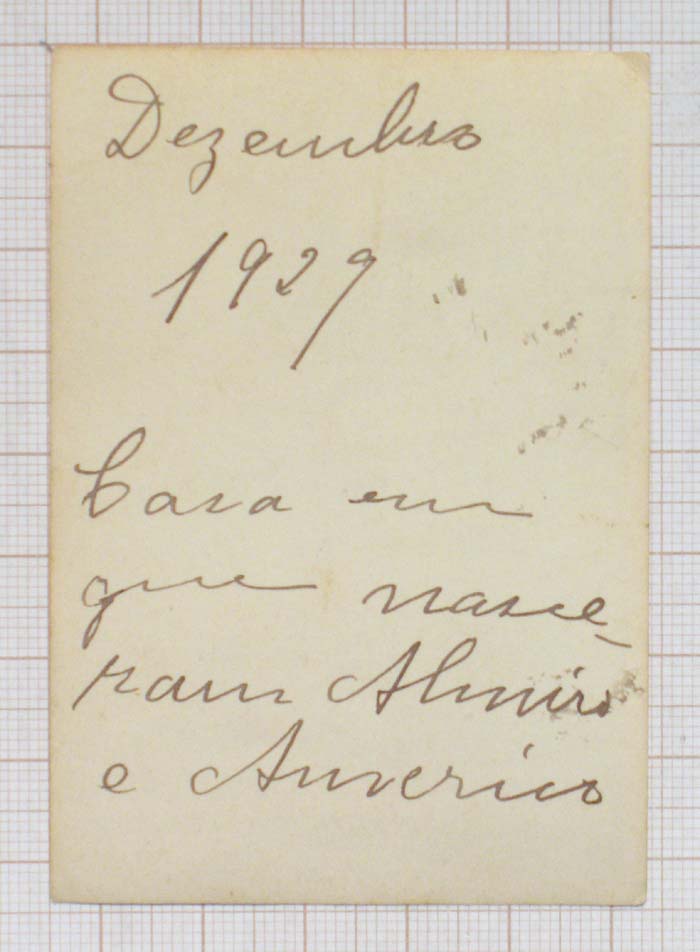 Dezembro
1929
Casa em
que nasce-
ram Almiro
e Americo